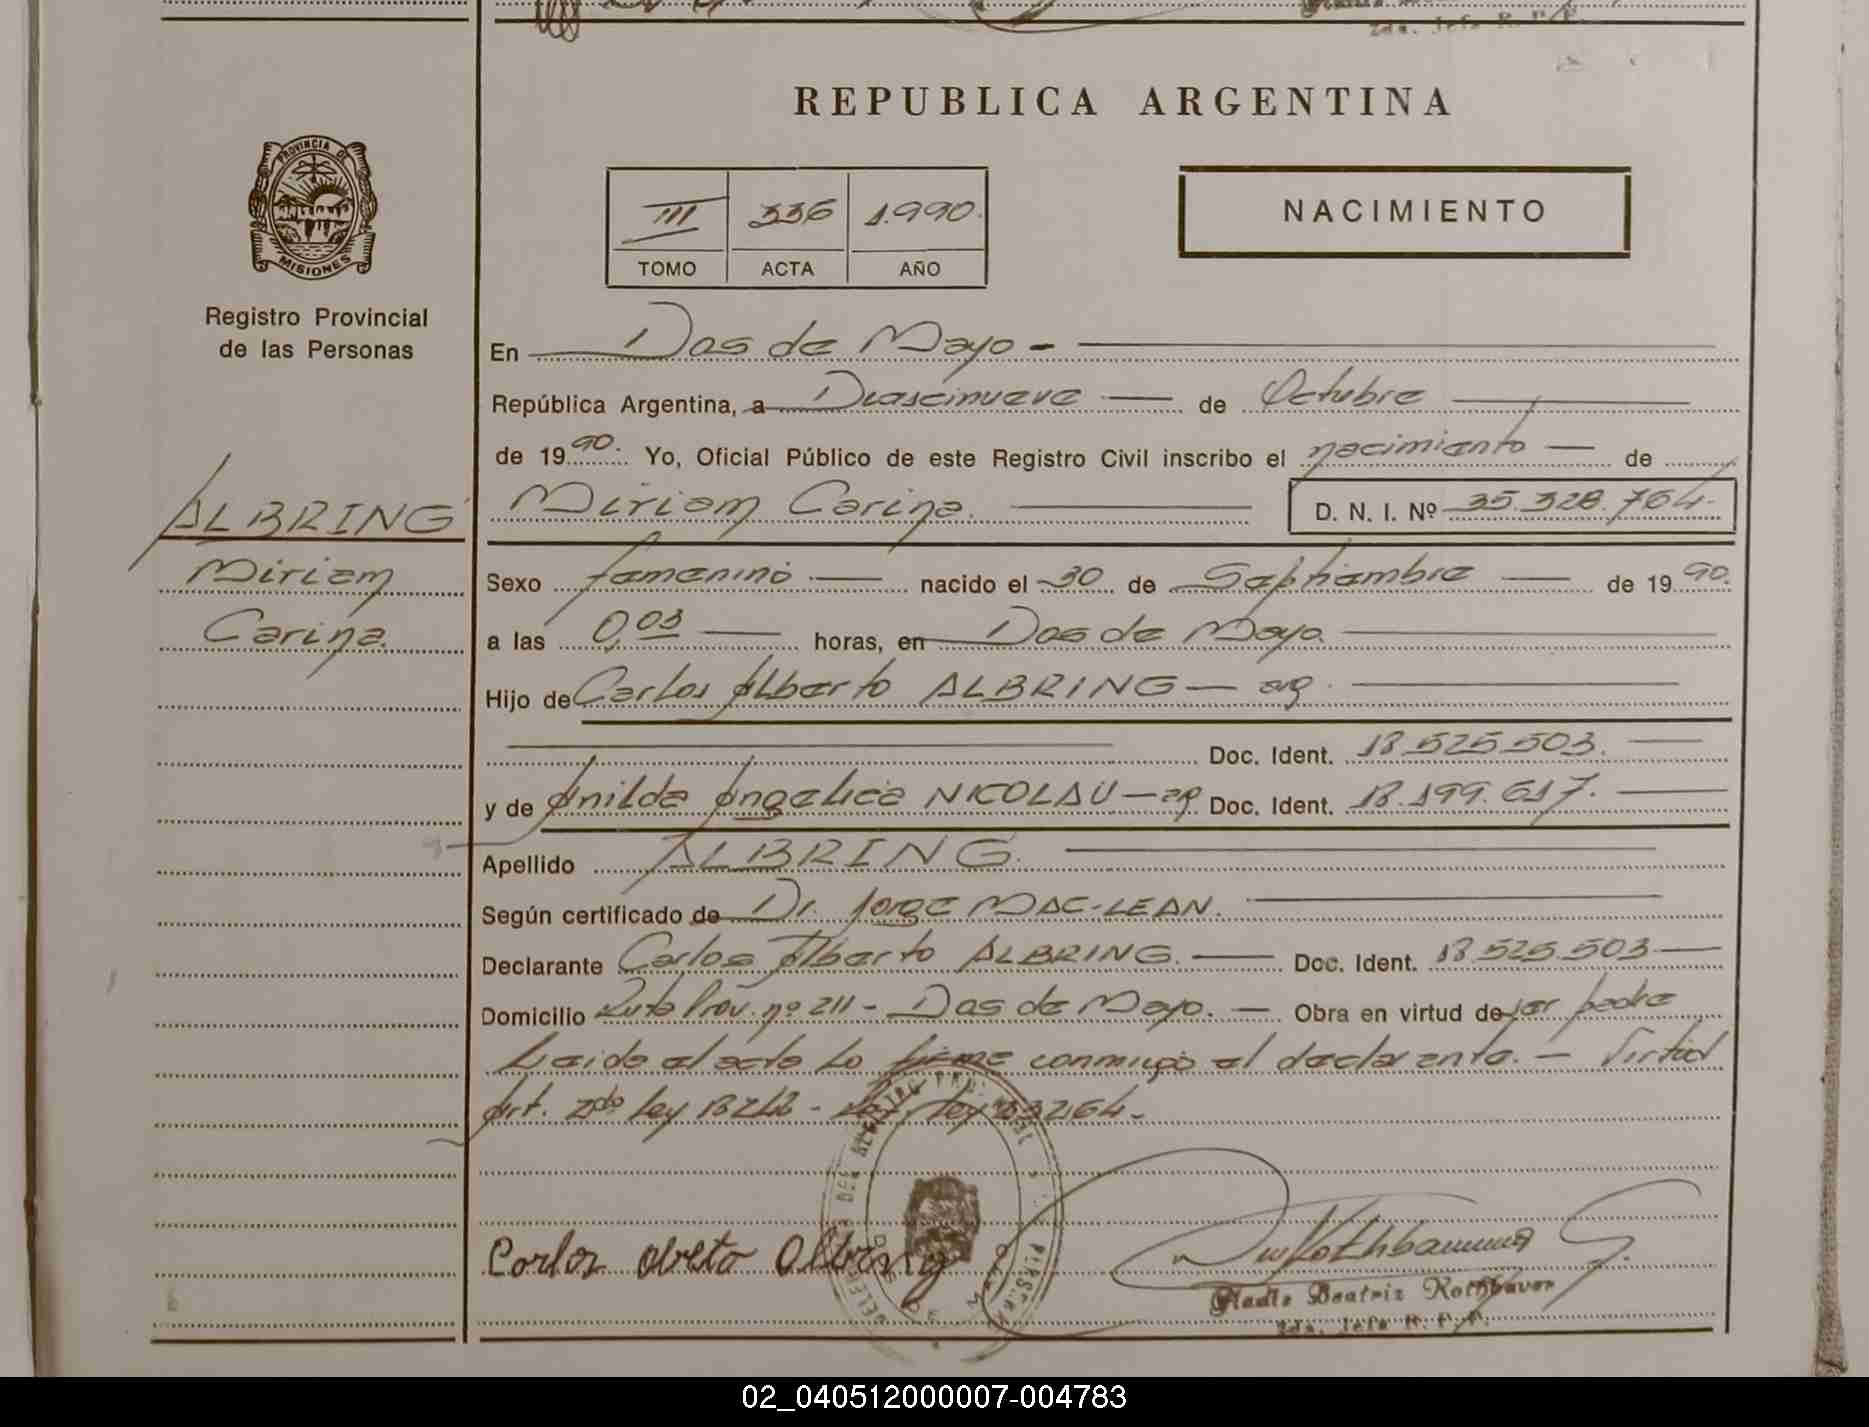 REPUBLICA ARGENTINA
PROVINCIA DE
MISIONES
Registro Provincial
de las Personas
III 336 1.990.
TOMO ACTA AÑO
NACIMIENTO
En Dos de Mayo -
República Argentina, a Diescinueve de Octubre
de 1990. Yo, Oficial Público de este Registro Civil inscribo el nacimiento de
Miriam Carina. D. N. I. Nº 35.328.764.
ALBRING
Miriam
Carina.
Sexo femenino nacido el 30 de Septiembre de 1990.
a las 0,03 horas, en Dos de Mayo.
Hijo de Carlos Alberto ALBRING - arg.
Doc. Ident. 18.525.503.
y de Anilda Angelica NICOLAU - arg Doc. Ident. 18.199.617.
Apellido ALBRING.
Según certificado de Dr. Jorge MAC-LEAN.
Declarante Carlos Alberto ALBRING. Doc. Ident. 18.525.503
Domicilio Ruta Prov. nº 211 - Dos de Mayo. Obra en virtud de ser padre
Leida el acta lo firma conmigo el declarante. - Virtud
Art. 2do Ley ley 23264.-
Gladis Beatriz Rothbaver
2da. Jefa R. P. P.
02_040512000007-004783